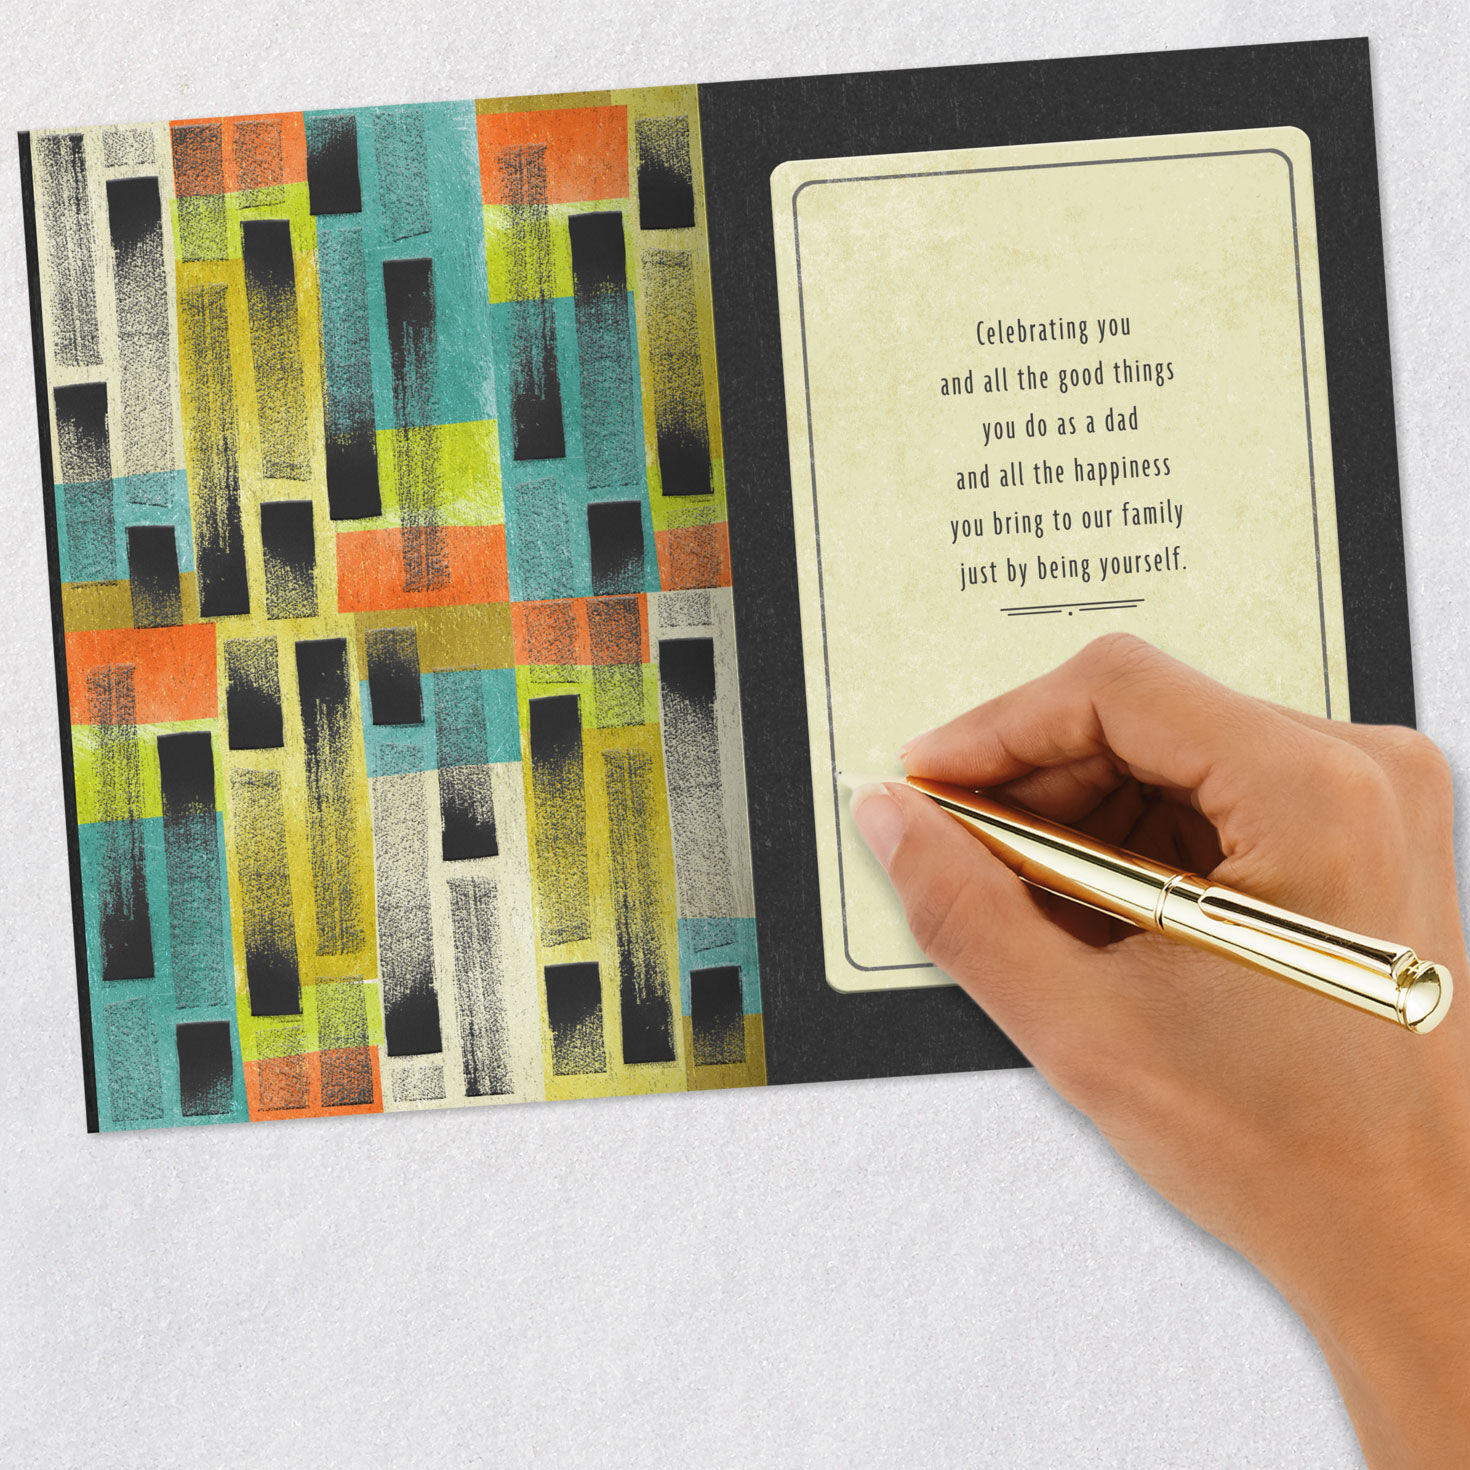 Celebrating you
and all the good things
you do as a dad
and all the happiness
you bring to our family
just by being yourself.